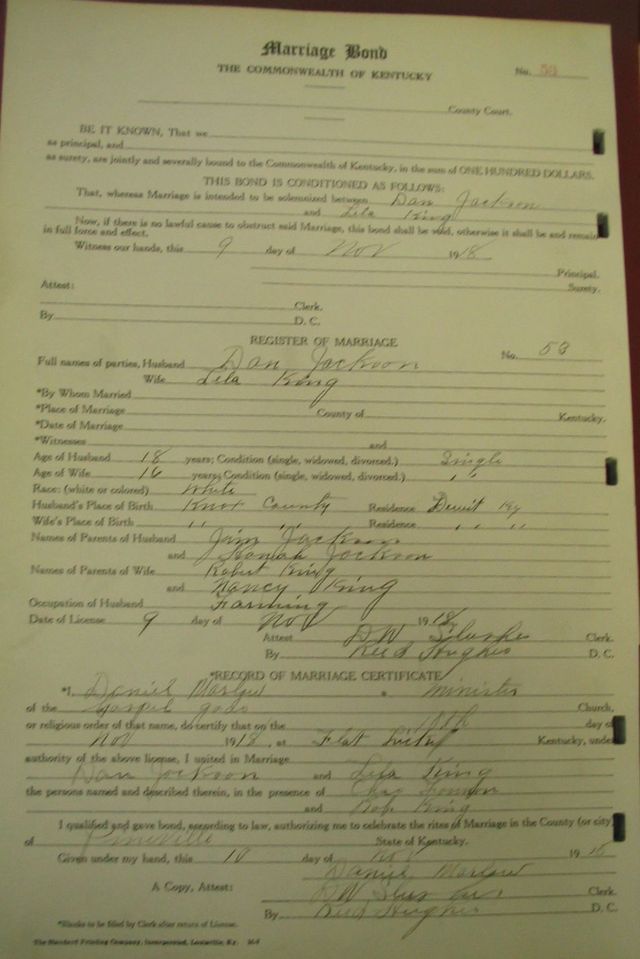 Marriage Bond
THE COMMONWEALTH OF KENTUCKY
No. 53
County Court.
BE IT KNOWN, That we
as principal, and
as surety, are jointly and severally bound to the Commonwealth of Kentucky, in the sum of ONE HUNDRED DOLLARS.
THIS BOND IS CONDITIONED AS FOLLOWS:
That, whereas Marriage is intended to be solemnized between Dan Jackson
and Lila King
Now, if there is no lawful cause to obstruct said Marriage, this bond shall be void, otherwise it shall be and remain
in full force and effect.
Witness our hands, this 9 day of Nov 1918
Principal.
Surety.
Attest:
Clerk.
By D. C.
REGISTER OF MARRIAGE
No. 53
Full names of parties, Husband Dan Jackson
Wife Lila King
*By Whom Married
*Place of Marriage County of Kentucky.
*Date of Marriage
*Witnesses and
Age of Husband 18 years; Condition (single, widowed, divorced.) Single
Age of Wife 16 years; Condition (single, widowed, divorced.) " "
Race: (white or colored) White
Husband's Place of Birth Knox County Residence Ky
Wife's Place of Birth " " Residence " "
Names of Parents of Husband Jim Jackson
and Jackson
Names of Parents of Wife Robert King
and Nancy King
Occupation of Husband Farming
Date of License 9 day of Nov 1918
Attest DW Slusher Clerk.
By Reed Hughes D. C.
*RECORD OF MARRIAGE CERTIFICATE
*I, Daniel Marlow a minister
of the Gospel Church,
or religious order of that name, do certify that on the day of
Nov 1918, at Flat Lick Kentucky, under
authority of the above license, I united in Marriage
Dan Jackson and Lila King
the persons named and described therein, in the presence of
and King
I qualified and gave bond, according to law, authorizing me to celebrate the rites of Marriage in the County (or city)
of Pineville State of Kentucky.
Given under my hand, this 10 day of Nov 1918
Daniel Marlow
A Copy, Attest: DW Slusher Clerk.
By Reed Hughes D. C.
*Blanks to be filled by Clerk after return of License.
The Standard Printing Company, Incorporated, Louisville, Ky.